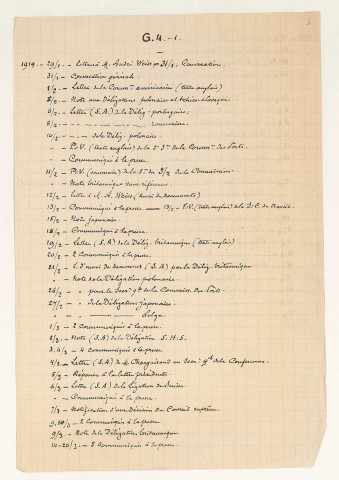 3
G.4.-1.
1919.- 29/1.- Lettre à M. André Weiss 31/1; Convocation.
31/1.- Convocation générale.
8/2.- Lettre de la Comm. américaine (texte anglais)
8/2.- Note aux Délégations polonaise et tchéco-slovaque.
9/2.- Lettre (S.A) de la Délég. portugaise.
8/2.- roumaine.
10/2.- de la Délég. polonaise.
" - P.V. (texte anglais) de la 2e Sce de la Comm. des Ports.
" - Communiqué à la presse.
11/2.- P.V. (sommaire) de la Sce du 3/2 de la Commission.
" - Note britannique sans référence.
12/2.- Lettre à M. A. Weiss (envoi de documents)
13/2.- Communiqué à la presse — 13/2.- P.V. (texte anglais) de la
15/2.- Note japonaise
18/2.- Communiqué à la presse.
19/2.- Lettre (S.A) de la Délég. britannique (texte anglais)
20/2.- 2 Communiqués à la presse.
21/2.- L. d'envoi de document (S.A) par la Délég. britannique
" - Note de la Délégation polonaise.
26/2.- " pour le Secre. gal. de la Commission des Ports.
27/2.- " de la Délégation japonaise.
" - " belge
1/3.- 2 Communiqués à la presse
2/3.- Note (S.A) de la Délégation S.H.S.
3.4/3.- 4 communiqués à la presse.
4/3.- Lettre (S.A) de M. Charguéraud au Secre. gal. de la Conférence.
5/3.- Réponse à la lettre précédente
6/3.- Lettre (S.A) de la Légation de Suisse.
" - Communiqué à la presse.
7/3.- Notification d'une Décision du Conseil suprême.
9.10/3.- 2 Communiqués à la presse
9/3.- Note de la Délégation britannique
14-20/3.- 5 Communiqués à la presse.